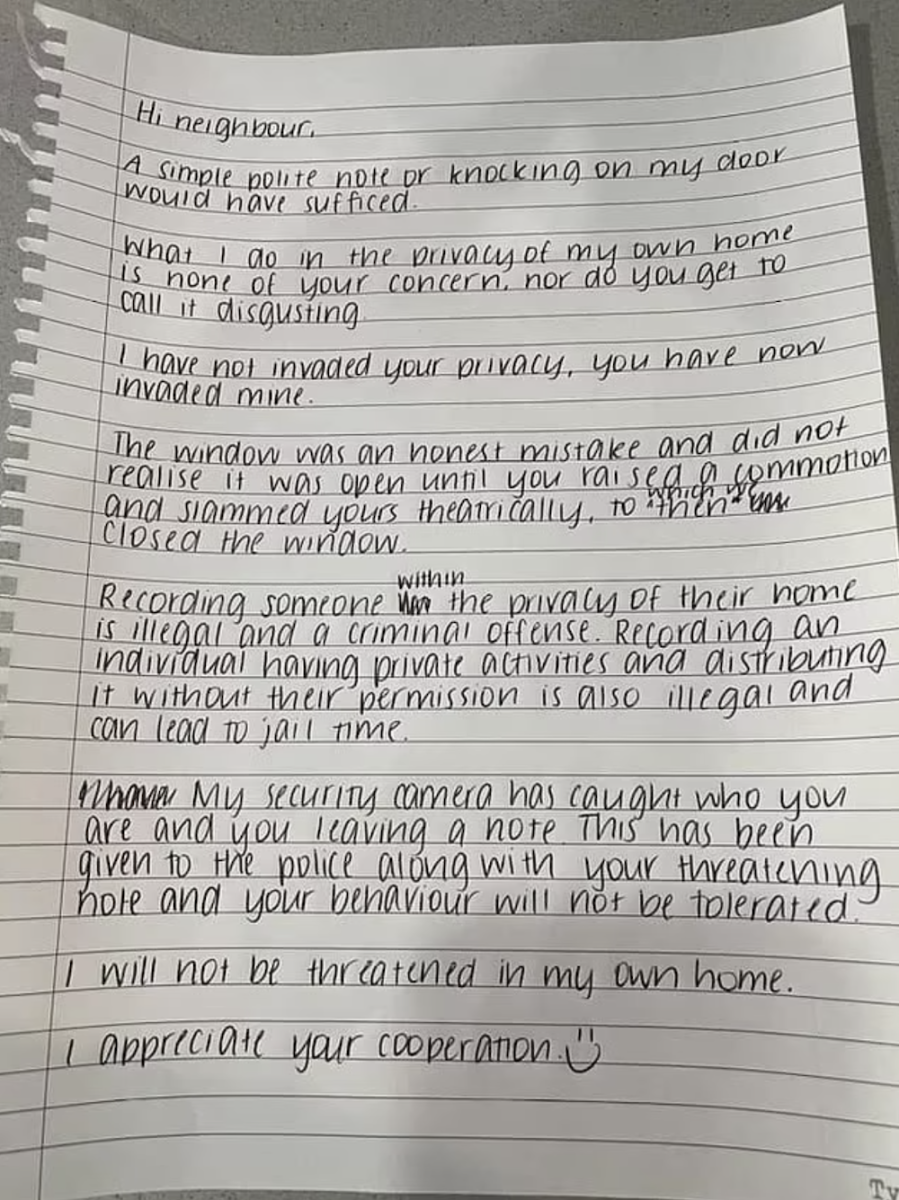 Hi neighbour,
A simple polite note or knocking on my door
would have sufficed.
What I do in the privacy of my own home
is none of your concern, nor do you get to
call it disgusting
I have not invaded your privacy, you have now
invaded mine.
The window was an honest mistake and did not
realise it was open until you raised a commotion
which we
and slammed yours theatrically, to then
closed the window.
within
Recording someone the privacy of their home
is illegal and a criminal offense. Recording an
individual having private activities and distributing
it without their permission is also illegal and
can lead to jail time.
My security camera has caught who you
are and you leaving a note. This has been
given to the police along with your threatening
note and your behaviour will not be tolerated.
I will not be threatened in my own home.
I appreciate your cooperation.